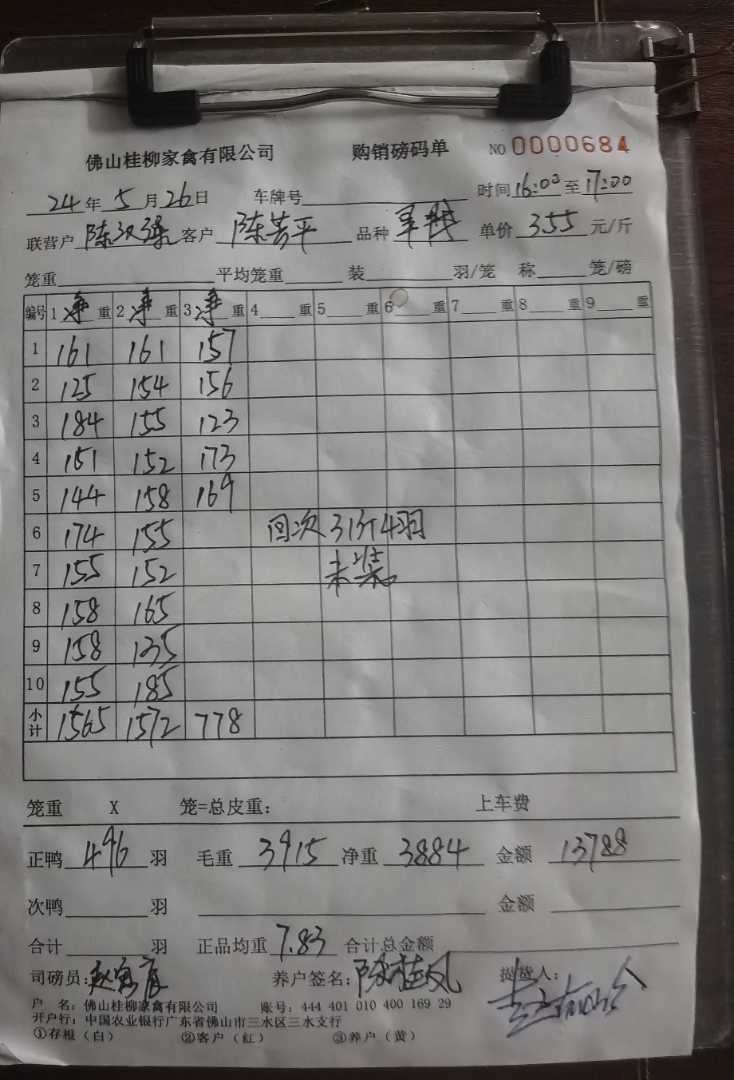 佛山桂柳家禽有限公司 购销磅码单 NO 0000684
24年5月26日 车牌号 时间16:00至17:00
联营户 陈汉 客户 陈芳平 品种 单价 3.55 元/斤
笼重 平均笼重 装 羽/笼 称 笼/磅
编号 1净重 2净重 3净重 4 重 5 重 6 重 7 重 8 重 9 重
1 161 161 157
2 125 154 156
3 184 155 123
4 151 152 173
5 144 158 169
6 174 155 回次31斤4羽
7 155 152 未装
8 158 165
9 158 135
10 155 185
小计 1565 1572 778
笼重 X 笼=总皮重: 上车费
正鸭 496 羽 毛重 3915 净重 3884 金额 13788
次鸭 羽 金额
合计 羽 正品均重 7.83 合计总金额
司磅员: 养户签名: 陈桂凤 提货人:
户 名: 佛山桂柳家禽有限公司 账号: 444 401 010 400 169 29
开户行: 中国农业银行广东省佛山市三水区三水支行
①存根(白) ②客户(红) ③养户(黄)